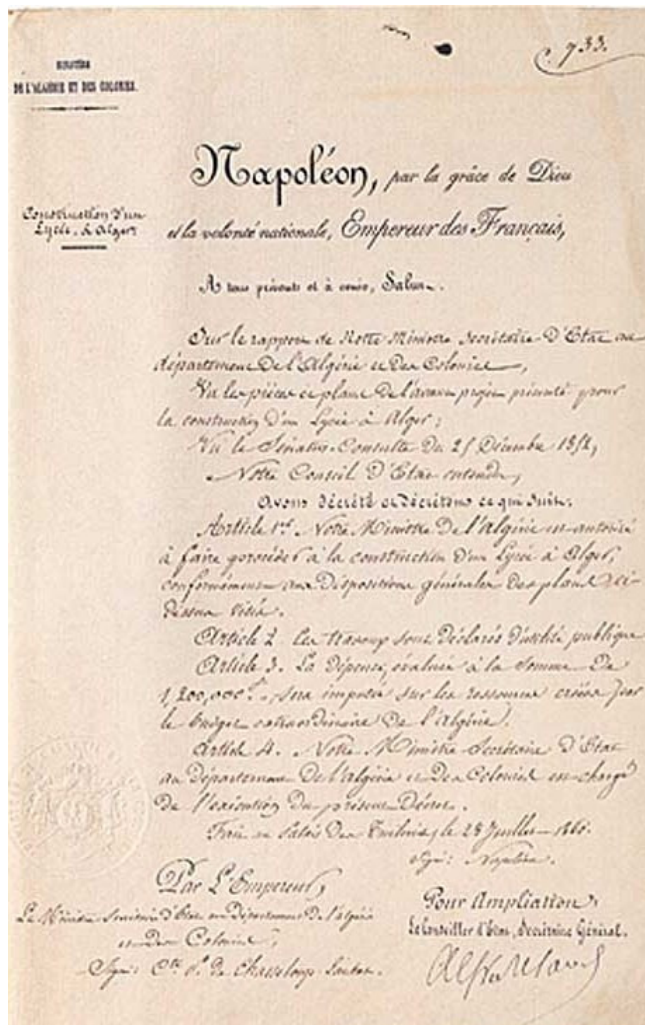 733.
MINISTÈRE
DE L'ALGÉRIE ET DES COLONIES.
Construction d'un
Lycée, à Alger
Napoléon, par la grâce de Dieu
et la volonté nationale, Empereur des Français,
A tous présents et à venir, Salut.
Sur le rapport de Notre Ministre Secrétaire d'Etat au
département de l'Algérie et des Colonies,
Vu les pièces et plans de l'avant projet présenté pour
la construction d'un Lycée à Alger;
Vu le Sénatus-Consulte du 25 Décembre 1852,
Notre Conseil d'Etat entendu,
avons décrété et décrétons ce qui suit:
Article 1er. Notre Ministre de l'Algérie est autorisé
à faire procéder à la construction d'un Lycée à Alger,
conformément aux dispositions générales des plans ci-
dessus visés.
Article 2. Les travaux sont déclarés d'utilité publique
Article 3. La dépense, évaluée à la somme de
1,200,000f., sera imputée sur les ressources créées pour
le budget extraordinaire de l'Algérie.
Article 4. Notre Ministre Secrétaire d'Etat
au département de l'Algérie et des Colonies est chargé
de l'exécution du présent Décret.
Fait au Palais des Tuileries, le 28 Juillet 1860.
Signé: Napoléon.
Par L'Empereur,
Le Ministre Secrétaire d'Etat au Département de l'Algérie
et des Colonies,
Signé: Cte P. de Chasseloup-Laubat.
Pour Ampliation,
Le Conseiller d'Etat, Secrétaire Général.